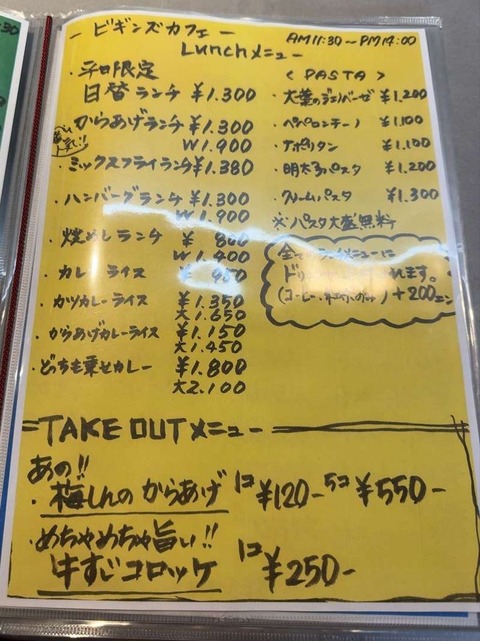 ービギンズカフェー
Lunchメニュー
AM11:30〜PM14:00
・平日限定
日替ランチ ¥1.300
・からあげランチ ¥1.300
人気!!
W1.900
・ミックスフライランチ ¥1.380
・ハンバーグランチ ¥1.300
W1.900
・焼めしランチ ¥800
W1.400
・カレーライス ¥950
・カツカレーライス ¥1.350
大1.650
・からあげカレーライス ¥1.150
大1.450
・どっちも乗せカレー ¥1.800
大2.100
<PASTA>
・大葉のジェノバーゼ ¥1.200
・ペペロンチーノ ¥1.100
・ナポリタン ¥1.100
・明太子パスタ ¥1.200
・クリームパスタ ¥1.300
※パスタ大盛無料
全て メニューに
ド れます。
(コーヒー ) +200エン
=TAKE OUTメニュー
あの!!
・梅しんのからあげ 1コ¥120- 5コ¥550-
・めちゃめちゃ旨い!!
牛すじコロッケ 1コ¥250-